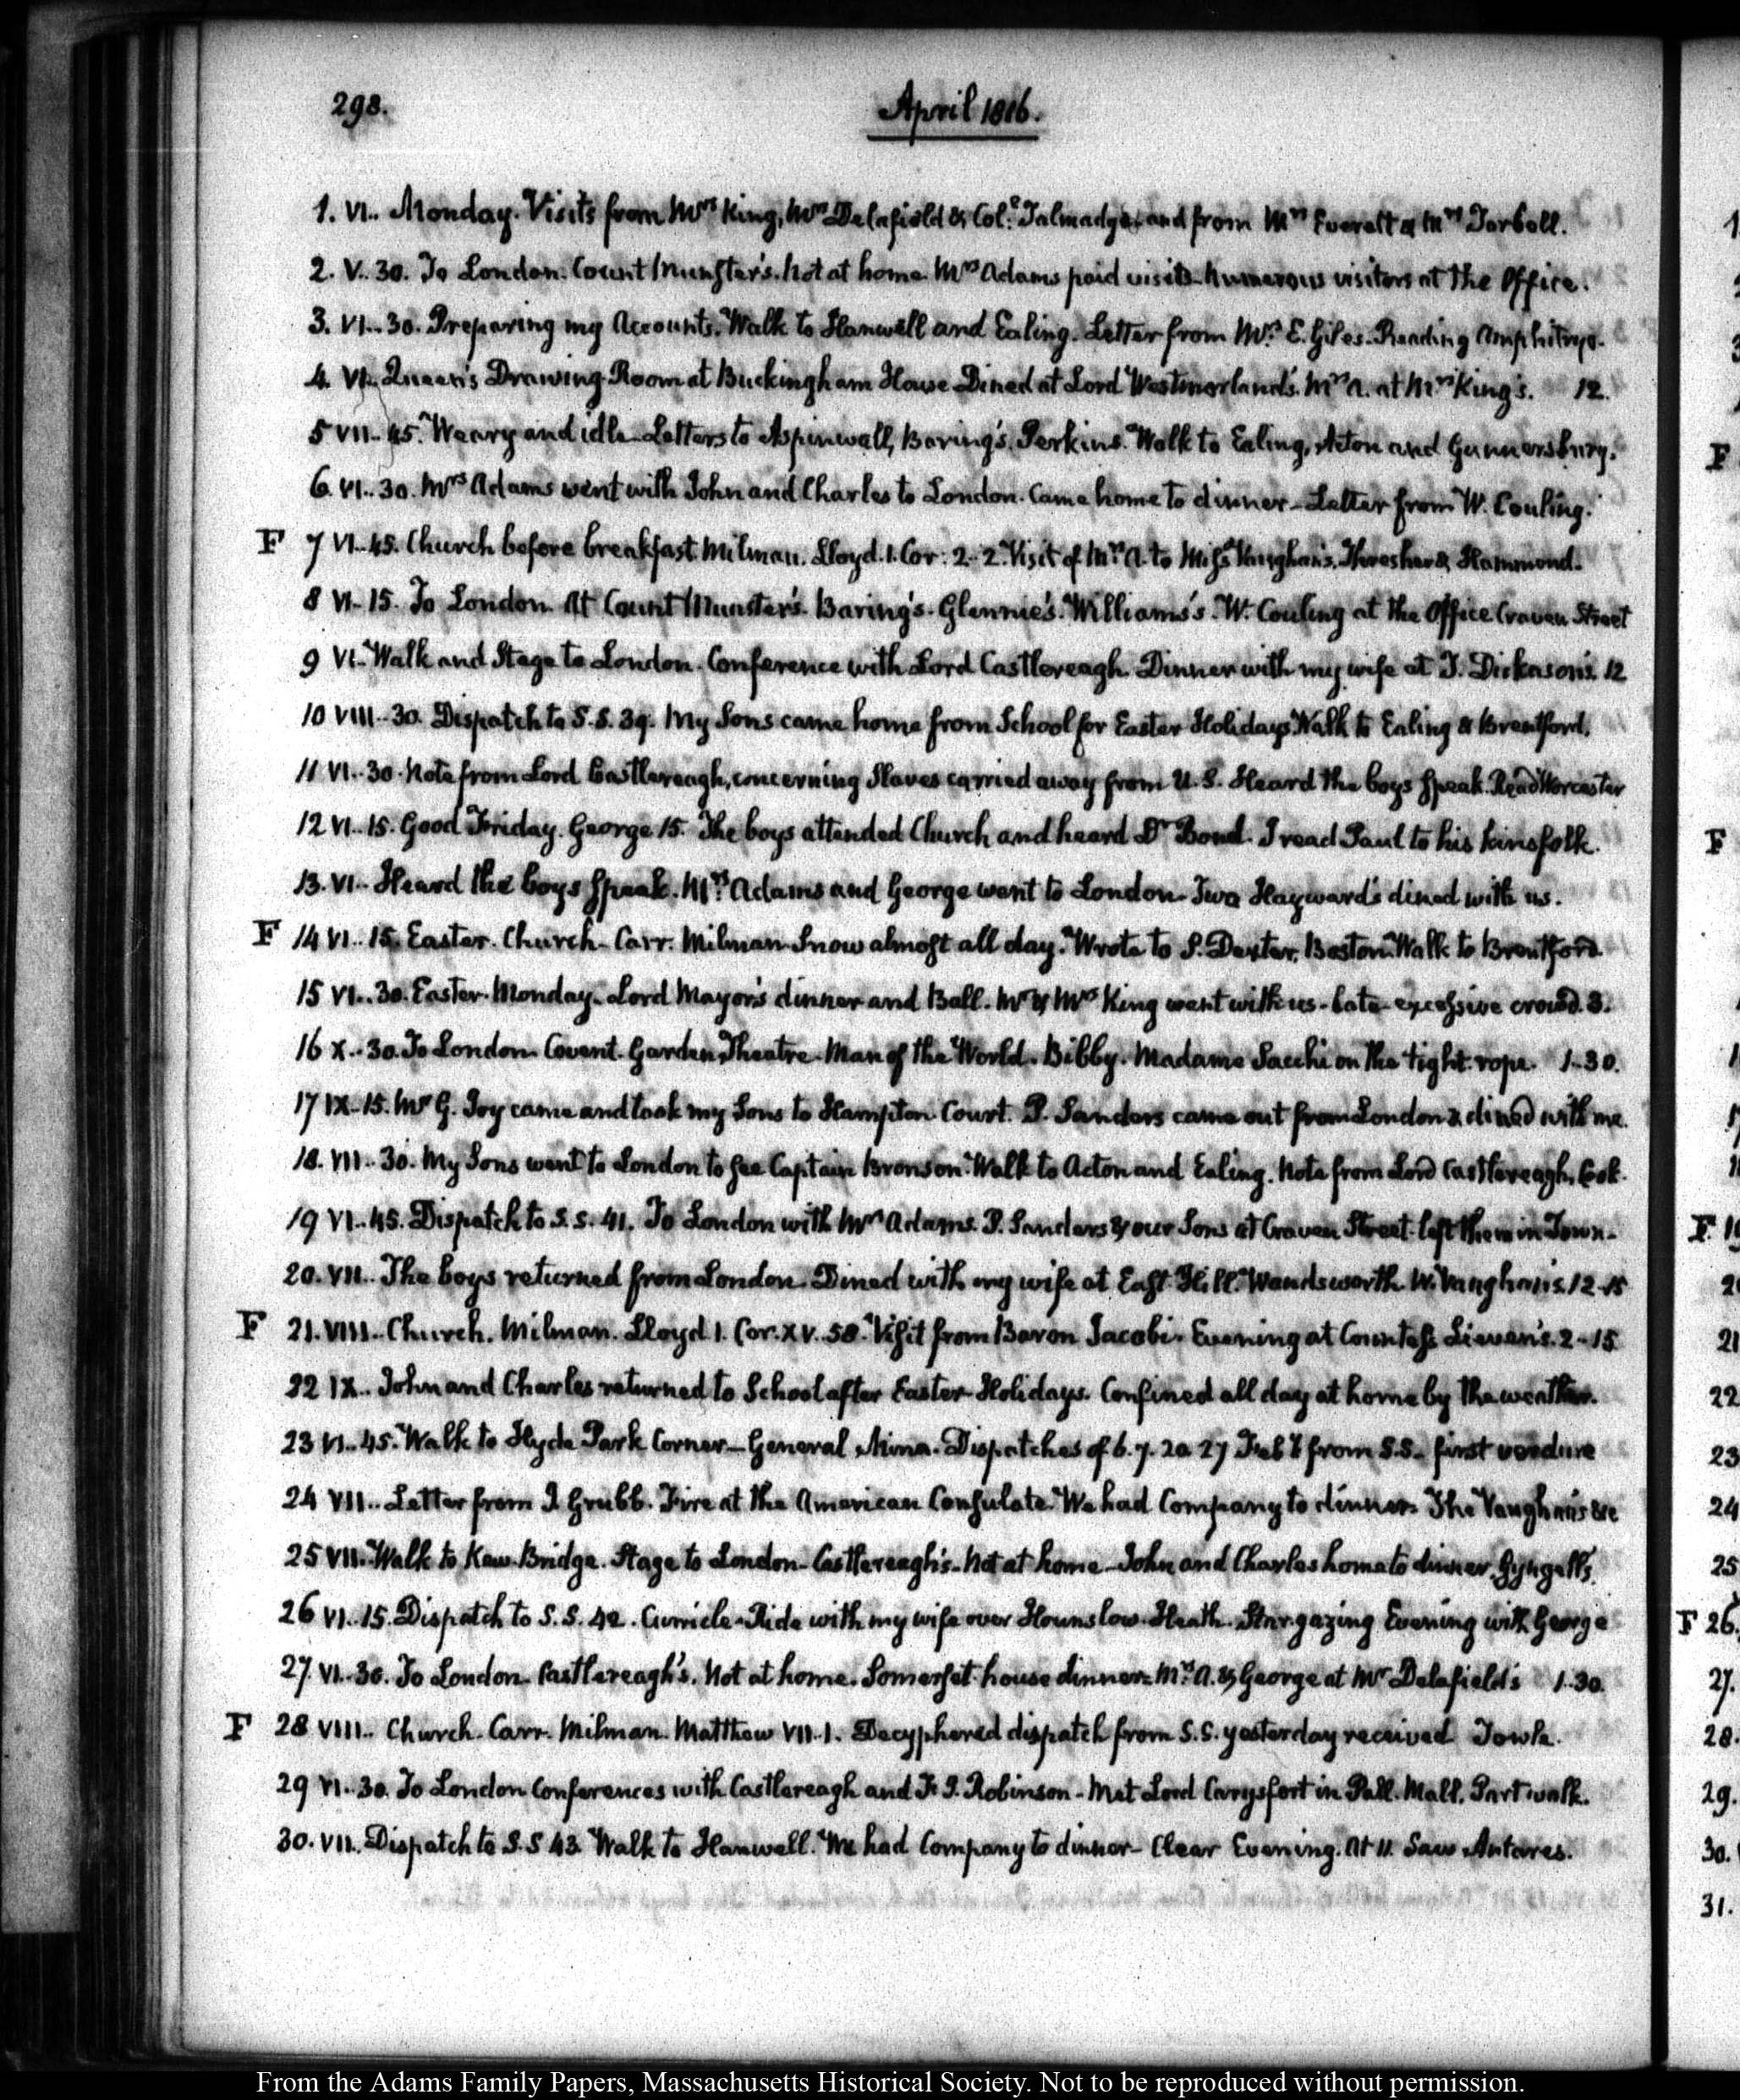 298.
April 1816.
1. VI.. Monday. Visits from Mrs King, Mrs Delafield & Col.l Talmadge, and from Mrs Everett & Mrs Tarbell.
2. V.. 30. To London. Count Munster's. Not at home. Mrs Adams paid visits. Numerous visitors at the Office.
3. VI.. 30. Preparing my Accounts. Walk to Hanwell and Ealing. Letter from Mrs E. Giles. Reading Amphitryo.
4. VI.. Queen's Drawing-Room at Buckingham House Dined at Lord Westmorland's. Mrs A. at Mrs King's. 12.
5 VII.. 45. Weary and idle. Letters to Aspinwall, Baring's, Perkins. Walk to Ealing, Acton and Gunnersbury.
6. VI.. 30. Mrs Adams went with John and Charles to London. Came home to dinner. Letter from W. Couling.
F 7 VI.. 45. Church before breakfast. Milman. Lloyd. 1. Cor: 2. 2. Visit of Mrs A. to Miss Vaughan's. Thresher & Hammond.
8 VI.. 15. To London. At Count Munster's. Baring's. Glennie's. Williams's. W. Couling at the Office Craven Street
9 VI.. Walk and Stage to London. Conference with Lord Castlereagh. Dinner with my wife at T. Dickason's. 12
10 VIII.. 30. Dispatch to S.S. 39. My Sons came home from School for Easter Holidays. Walk to Ealing & Brentford.
11 VI.. 30. Note from Lord Castlereagh, concerning Slaves carried away from U.S. Heard the boys speak. Read Worcester
12 VI.. 15. Good Friday. George 15. The boys attended Church and heard Dr Bond. I read Paul to his kinsfolk.
13. VI.. Heard the boys speak. Mrs Adams and George went to London. Two Hayward's dined with us.
F 14 VI.. 15. Easter. Church. Carr. Milman. Snow almost all day. Wrote to S. Dexter, Boston. Walk to Brentford.
15 VI.. 30. Easter-Monday. Lord Mayor's dinner and Ball. Mr & Mrs King went with us. Late. excessive crowd. 3.
16 X.. 30. To London. Covent-Garden Theatre. Man of the World. Bibby. Madame Sacchi on the tight rope. 1-30.
17 IX.. 15. Mr G. Joy came and took my Sons to Hampton Court. P. Sanders came out from London & dined with me.
18. VII.. 30. My Sons went to London to see Captain Bronson. Walk to Acton and Ealing. Note from Lord Castlereagh, Cook.
19 VI.. 45. Dispatch to S.S. 41. To London with Mrs Adams. P. Sanders & our Sons at Craven Street. left them in Town.
20. VII.. The boys returned from London. Dined with my wife at East-Hill. Wandsworth. W. Vaughan's. 12-15
F 21. VIII.. Church. Milman. Lloyd 1. Cor. XV. 58. Visit from Baron Jacobi. Evening at Countess Lieven's. 2-15
22 IX.. John and Charles returned to School after Easter Holidays. Confined all day at home by the weather.
23 VI.. 45. Walk to Hyde Park Corner. General Mina. Dispatches of 6. 7. 20. 27 Feby from S.S. first verdure
24 VII.. Letter from J. Grubb. Fire at the American Consulate. We had Company to dinner. The Vaughan's &c
25 VII.. Walk to Kew-Bridge. Stage to London. Castlereagh's. Not at home. John and Charles home to dinner. Gyngell's.
26 VI.. 15. Dispatch to S.S. 42. Curricle-Ride with my wife over Hounslow-Heath. Star-gazing Evening with George
27. VI.. 30. To London. Castlereagh's. Not at home. Somerset-house dinner. Mrs A. & George at Mr Delafield's 1-30.
F 28 VIII.. Church. Carr. Milman. Matthew VII. 1. Decyphered dispatch from S.S. yesterday received
29 VI.. 30. To London Conferences with Castlereagh and F. J. Robinson. Met Lord Carysfort in Pall-Mall. Part walk.
30. VII. Dispatch to S.S 43. Walk to Hanwell. We had Company to dinner. Clear Evening. At 11. Saw Antares.
From the Adams Family Papers, Massachusetts Historical Society. Not to be reproduced without permission.